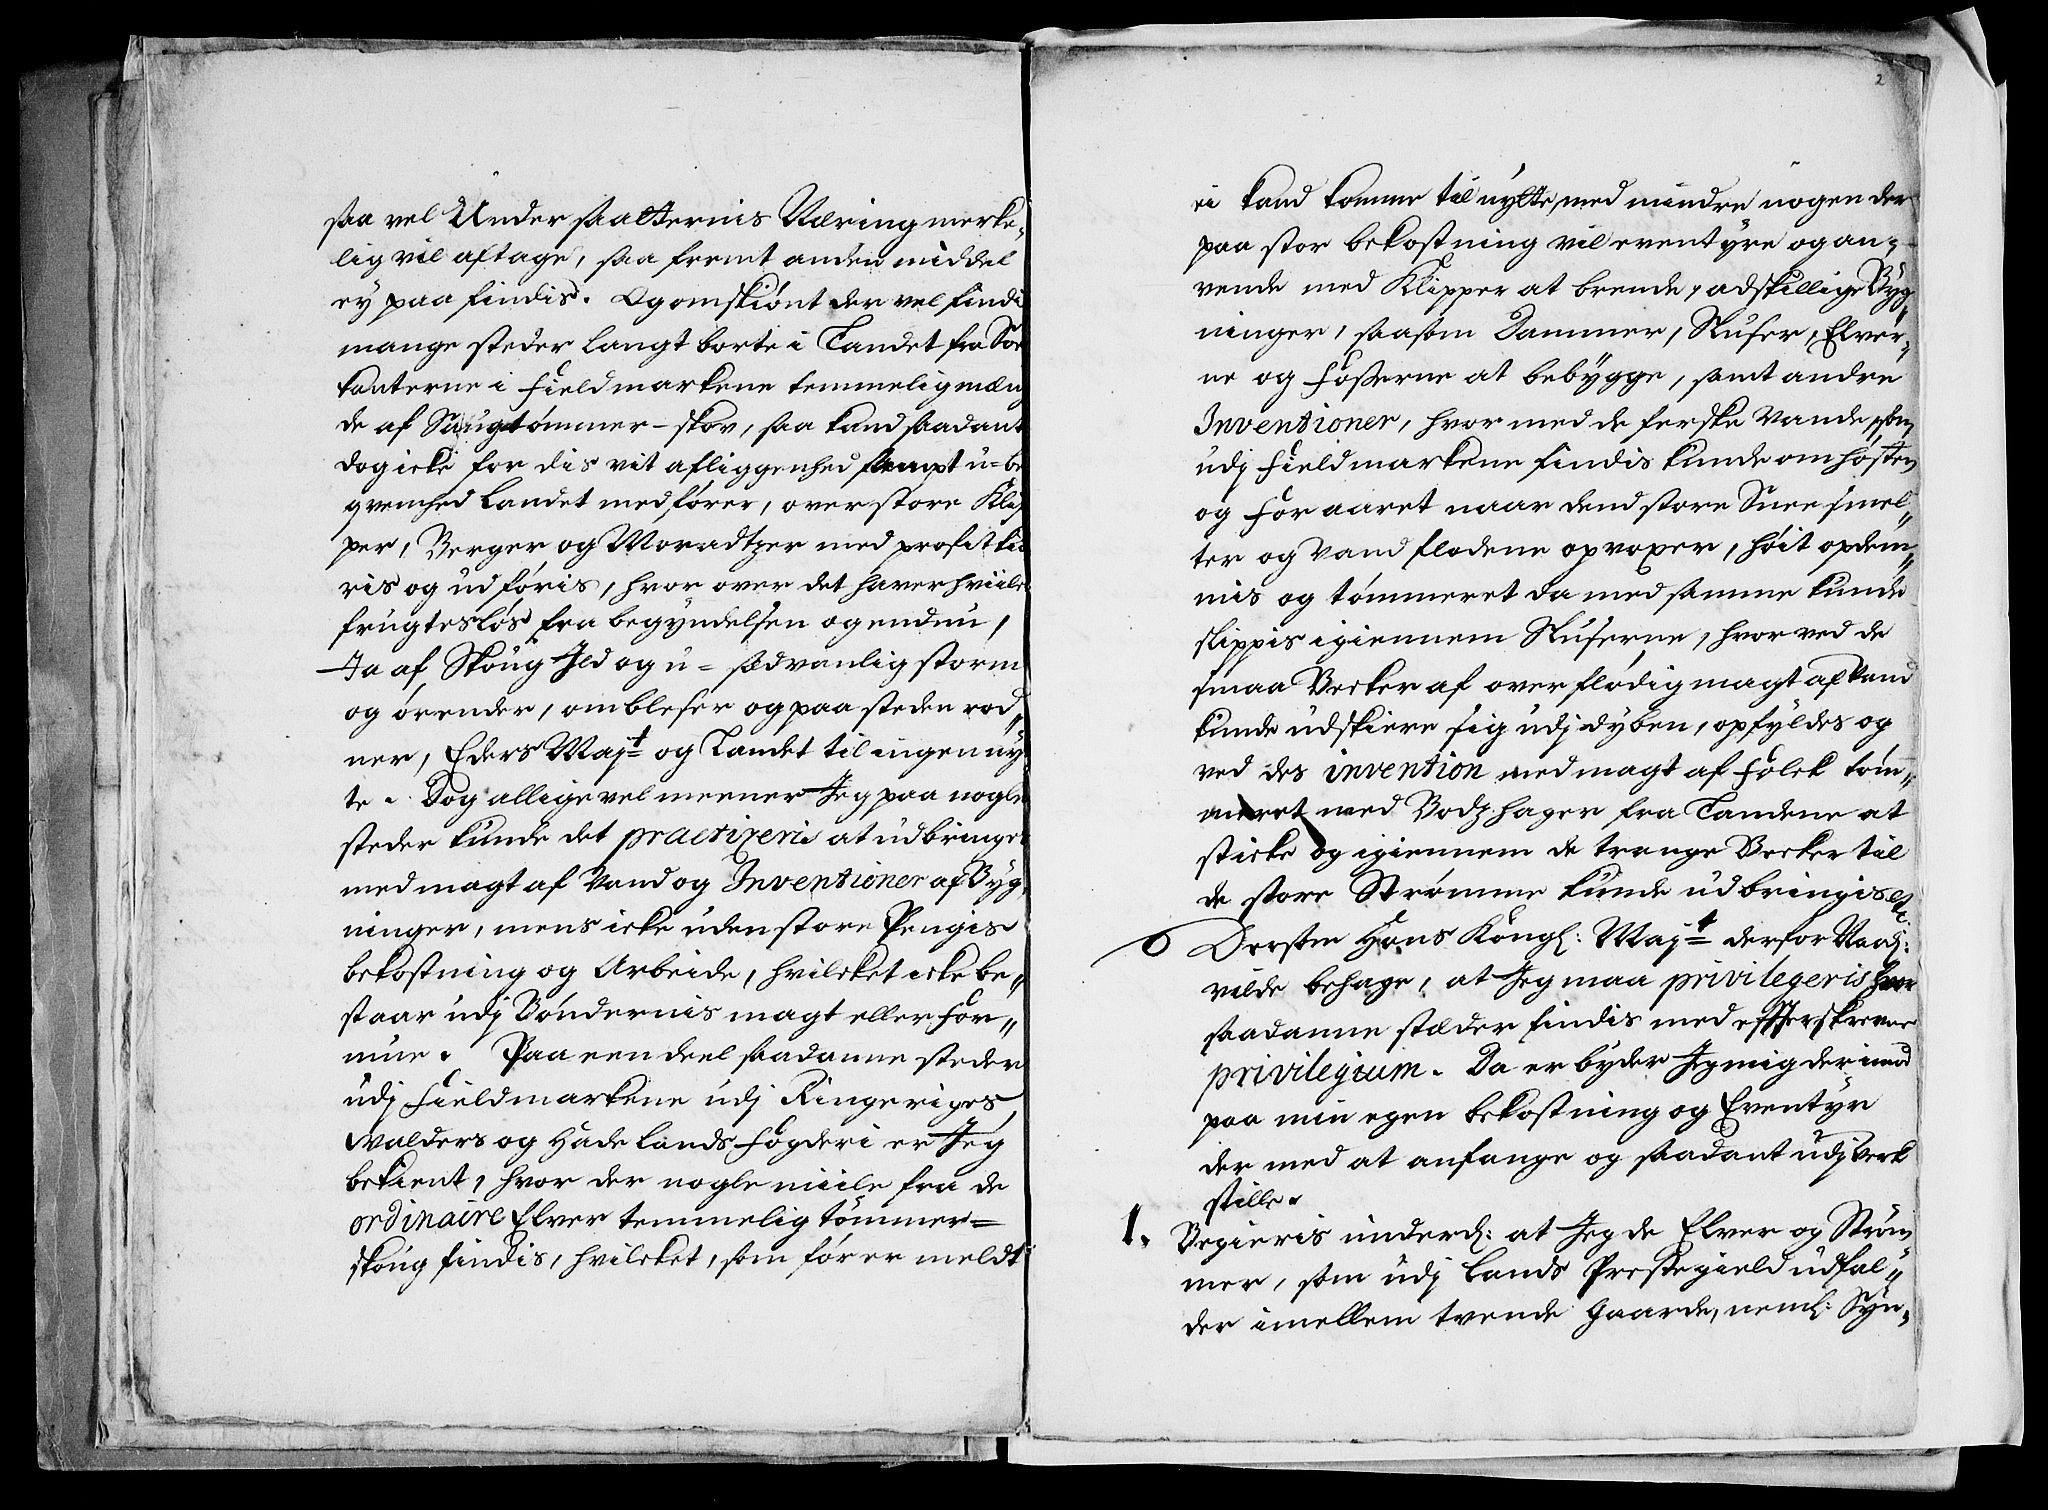 saa vel Undersaatternis Næring merke,
lig vil aftage, saa fremt anden middel
ey paa findis. Og omskiønt der vel findi
mange steder langt borte i Landet fra Søe
kanterne i Fieldmarkene temmelig mæn
de af Saugtømmer-skov, saa kand saadant
dog icke for dis vit afliggenhed sampt u-be
qvemhed Landet medfører, over store Klip
per, Berger og Moradtzer med profit kiø
ris og udføris, hvor over det haver hviilet
frugtesløs fra begyndelsen og endnu,
Ja af Skoug Ild og u-sædvanlig storm
og ørender, ombleser og paa steden rod„
ner, Eders Majt og Landet til ingen ny
te. Dog alligevel meener Jeg paa nogle
steder kunde det practixeris at udbringe
med magt af Vand og Inventioner af Byg,
ninger, mens icke uden store Pengis
bekostning og Arbeide, hvilcket icke be„
staar udj Bøndernis magt eller For„
mue. Paa een deel saadanne steder
udj Fieldmarkene udj Ringeriges
Walders og Hadelands Fogderi er Jeg
bekient, hvor der nogle miile fra de
ordinaire Elver temmelig tømmer=
skoug findis, hvilcket, som før er meldt
2
ei kand komme til nytte, med mindre nogen der
paa stor bekostning vil eventyre og an„
vende med Klipper at brende, adskillige Byg„
ninger, saasom Dammer, Sluser, Elver„
ne og Fosserne at bebygge, samt andre
Inventioner, hvor med de ferske Vande, som
udj Fieldmarkene findis kunde om høsten
og Foraaret naar dend store Snee smel„
ter og Vandflodene opvoxer, høit opdem„
mis og tømmeret da med samme kunde
slippis igiennem Sluserne, hvor ved de
smaa Becker af overflødig magt af Vand
kunde udskiere sig udj dyben, opfyldes og
ved des invention med magt af Folck tøm„
meret med Bodzhager fra Landene at
sticke og igiennem de trange Becker til
de store Strømme kunde udbringis etc.
Dersom Hans Kongl: Majt derfor Naad:
vilde behage, at Jeg maa privilegeris hvor
saadanne stæder findis med efterskrevne
privilegium. Da erbyder Jeg mig derimod
paa min egen bekostning og Eventyr
der med at anfange og saadant udj Verk
stille.
1. Begieris underd: at Jeg de Elver og Strøm
mer, som udj Lands Prestegield udfal„
der imellem tvende Gaarde, neml: Syn„